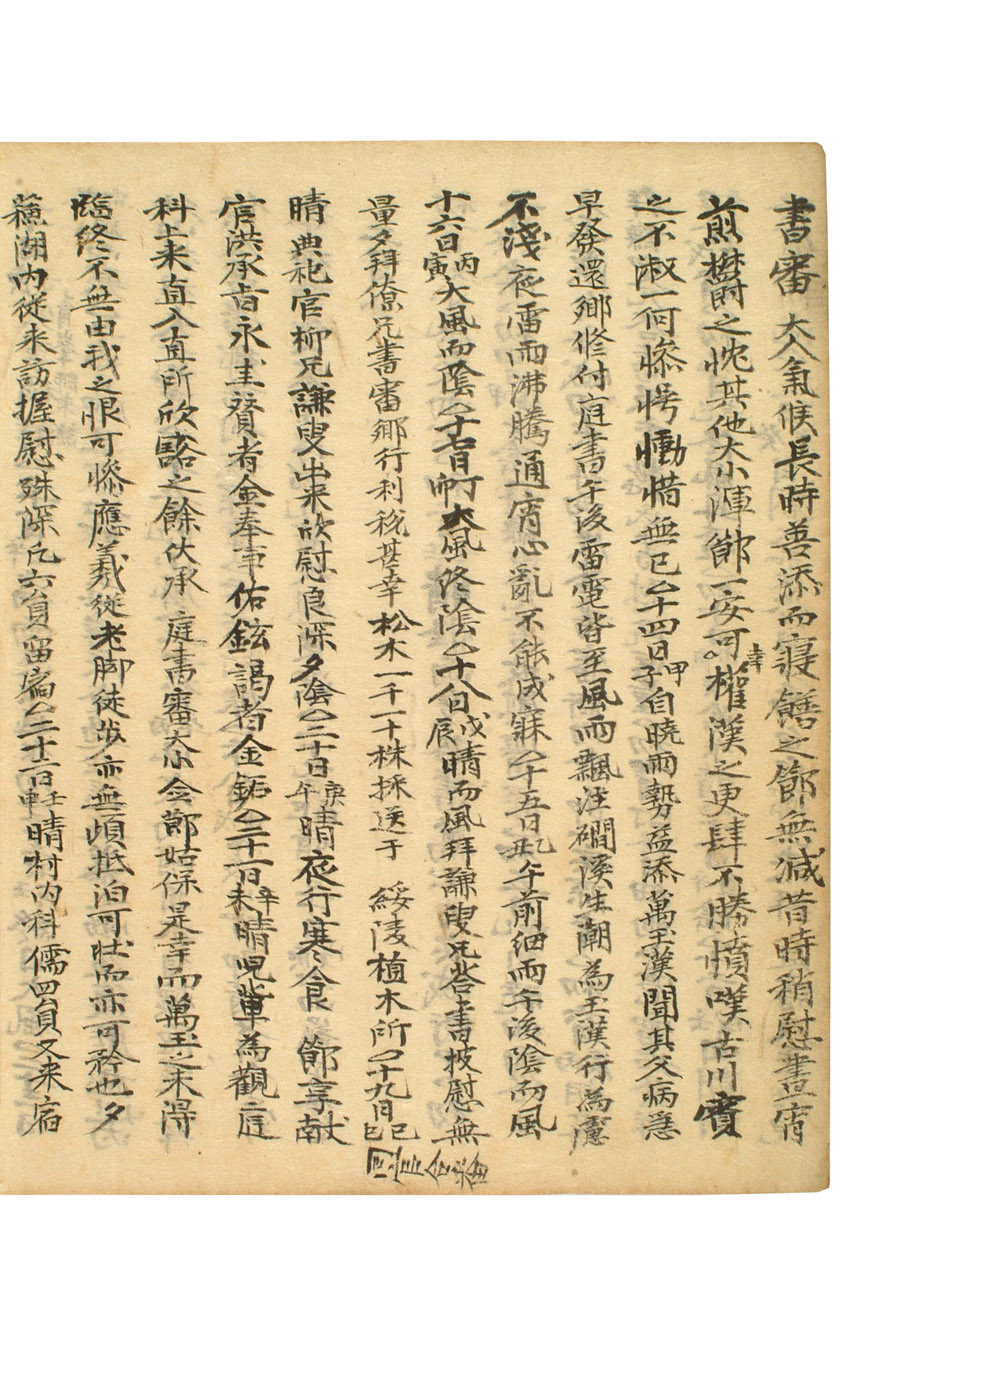 書審 大人氣候長時善添而寢饍之節無減昔時稍慰晝宵
煎欝之忱其他大小渾節一安可幸權漢之更肆不勝憤嘆古川寶
之不淑一何慘愕慟惜無已△十四日甲子自曉雨勢益添萬玉漢聞其父病急
早發還鄉修付庭書午後雷電皆至風雨飄注磵溪生潮為玉漢行為慮
不淺夜雷雨沸騰通宵心亂不能成寐△十五日乙丑午前細雨午後陰而風
十六日丙寅大風而陰△十七日丁卯大風終陰△十八日戊辰晴而風拜謙叟兄答書披慰無
量夕拜僚兄書審鄉行利稅甚幸 松木一千一十株採送于 綏陵植木所△十九日己巳
晴典祀官柳兄謙叟出來欣慰良深夕陰△二十日庚午晴夜行寒食節享献
官洪承旨永圭贊者金奉事佑鉉謁者金鉐△二十一日辛未晴兒輩為觀庭
科上來直入直所欣豁之餘伏承 庭書審大小僉節姑保是幸而萬玉之未得
臨終不無由我之恨可慘應羲從老脚徒步亦無頉抵泊可壯而亦可矜也夕
蘓湖內從來訪握慰殊深凡六員留宿△二十二日壬申晴村內科儒四員又來宿